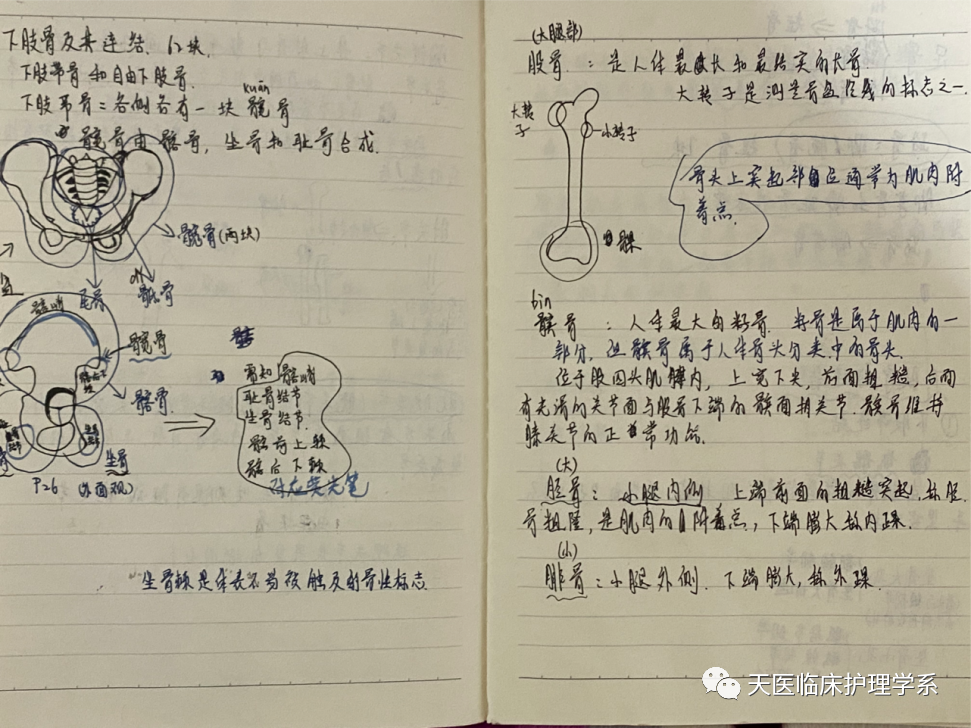 下肢骨及其连结. 62块.
下肢带骨和自由下肢骨.
kuān
下肢带骨: 各侧各有一块髋骨
髋骨由髂骨, 坐骨和耻骨合成.
髋骨(两块)
尾骨
骶骨
髂嵴
髋骨
髂骨.
需知 髂嵴
耻骨结节
坐骨结节.
髂前上棘
髂后下棘
对应荧光笔
坐骨
P26 (外面观)
坐骨棘是体表不易被触及的骨性标志
(大腿部)
股骨: 是人体最长和最结实的长骨
大转子是测量骨盆径线的标志之一.
大转子
小转子
骨头上突起部位通常为肌肉附
着点.
髁
bin
髌骨: 人体最大的籽骨. 籽骨是属于肌肉的一
部分, 但髌骨属于人体骨头分类中的骨头.
位于股四头肌腱内, 上宽下尖, 前面粗糙, 后面
有光滑的关节面与股骨下端的髌面相关节. 髌骨维持
膝关节的正常功能.
(大)
胫骨: 小腿内侧 上端前面的粗糙突起, 称胫
骨粗隆, 是肌肉的附着点, 下端膨大称内踝.
(小)
腓骨: 小腿外侧. 下端膨大, 称外踝.
天医临床护理学系